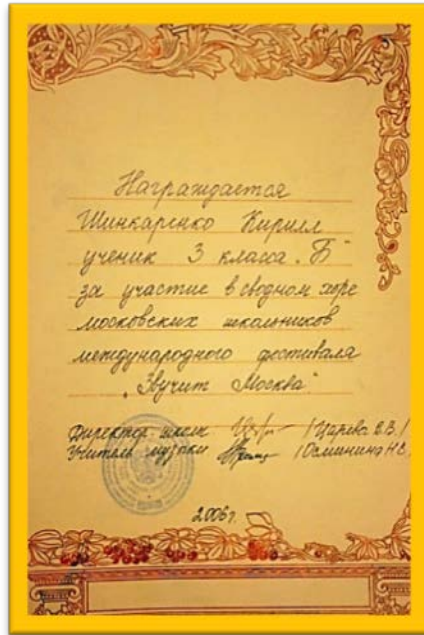 Награждается
Шинкаренко Кирилл
ученик 3 класса „Б"
за участие в сводном хоре
московских школьников
международного фестиваля
„Звучит Москва"
Директор школы /Царева В.В./
Учитель музыки /Осминина Н.С.
2006 г.